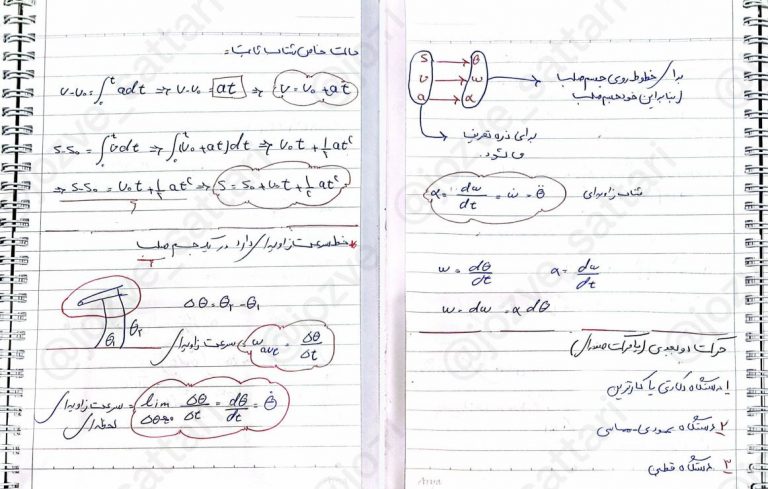 حالت خاص شتاب ثابت:
v-v₀ = ∫₀ᵗ a dt ⇒ v-v₀ = at ⇒ v = v₀ + at
s-s₀ = ∫₀ᵗ v dt ⇒ ∫₀ᵗ (v₀ + at) dt ⇒ v₀t + ½at²
⇒ s-s₀ = v₀t + ½at² ⇒ s = s₀ + v₀t + ½at²
* خط سرعت زاویه‌ای دارد در یک جسم صلب
Δθ = θ₂ - θ₁
θ₁ θ₂
سرعت زاویه‌ای = ω ave = Δθ/Δt
سرعت زاویه‌ای لحظه‌ای = lim Δθ/Δt = dθ/dt = θ̇
s → θ
v → ω
a → α
برای خطوط روی جسم صلب
بنابراین خود جسم صلب
برای ذره تعریف
می‌شود.
شتاب زاویه‌ای α = dω/dt = ω̇ = θ̈
ω = dθ/dt α = dω/dt
ω = dω = α dθ
حرکت دو بعدی
۱ دستگاه دکارتی یا کارتزین
۲ دستگاه عمودی-مماسی
۳ دستگاه قطبی
@jozve_sattari